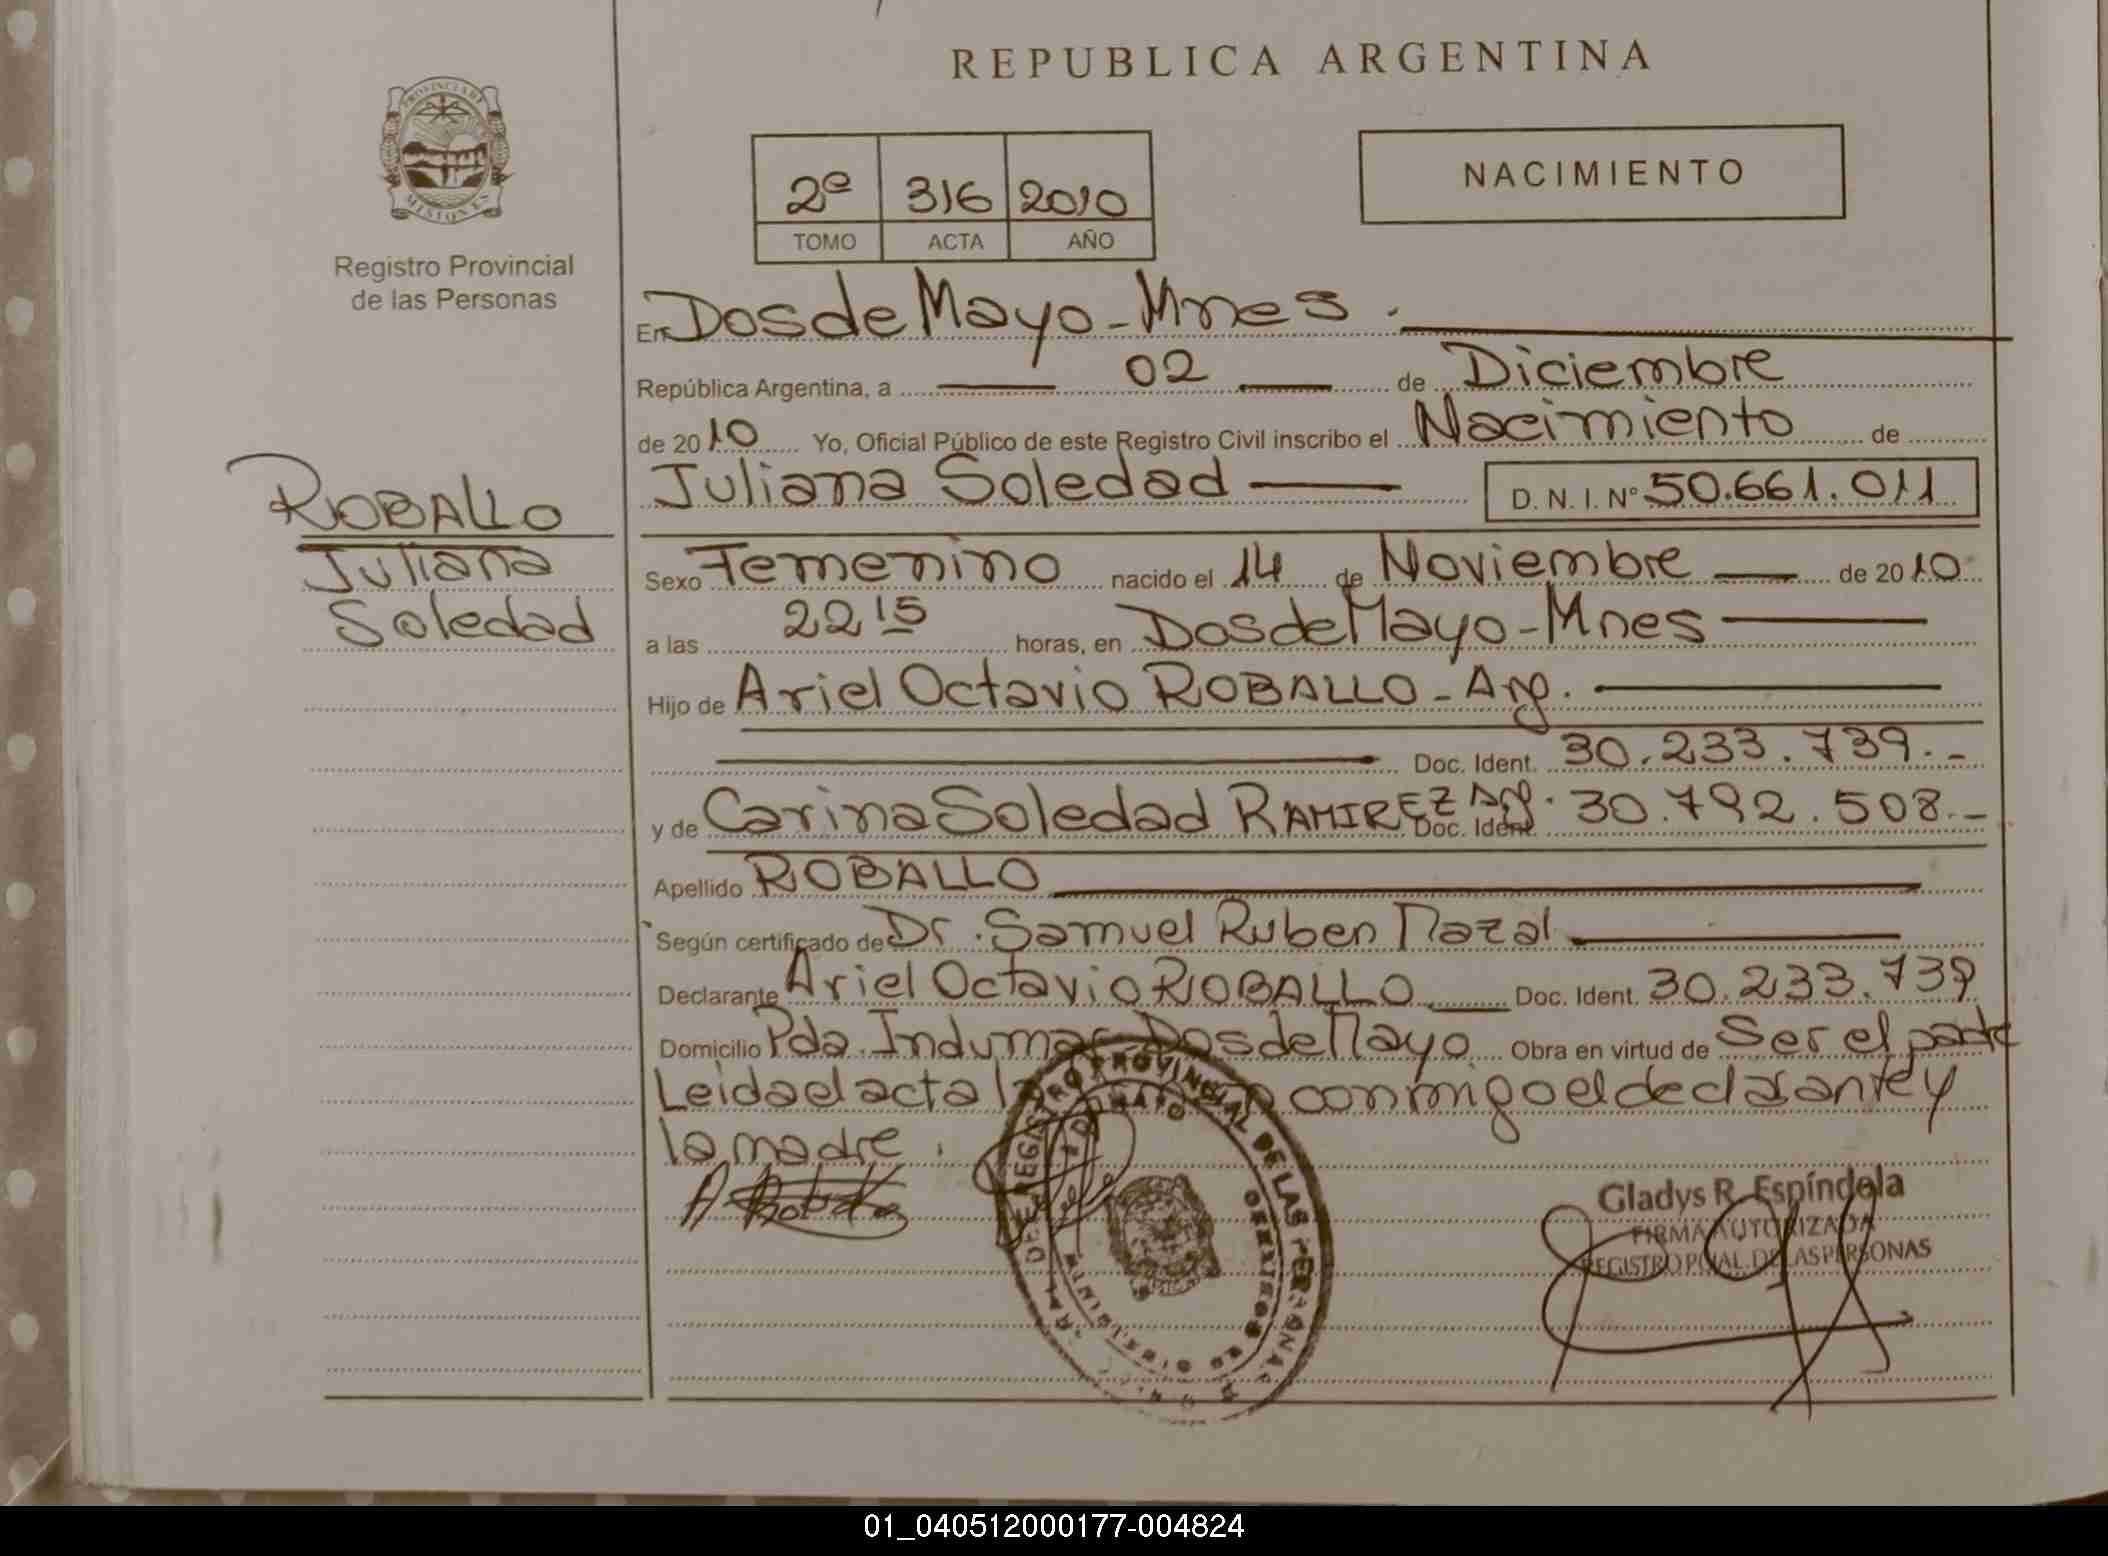 REPUBLICA ARGENTINA
PROVINCIA DE
MISIONES
Registro Provincial
de las Personas
2º 316 2010
TOMO ACTA AÑO
NACIMIENTO
En Dos de Mayo - Mnes.
República Argentina, a 02 de Diciembre
de 2010 Yo, Oficial Público de este Registro Civil inscribo el Nacimiento de
Juliana Soledad D. N. I. Nº 50.661.011
ROBALLO
Juliana
Soledad
Sexo Femenino nacido el 14 de Noviembre de 2010
a las 22 15 horas, en Dos de Mayo - Mnes
Hijo de Ariel Octavio ROBALLO - Arg.
Doc. Ident. 30.233.739.-
y de Carina Soledad RAMIREZ Arg. Doc. Ident. 30.792.508.-
Apellido ROBALLO
Según certificado de Dr. Samuel Ruben Nazal
Declarante Ariel Octavio ROBALLO Doc. Ident. 30.233.739
Domicilio Pda. Indumar - Dos de Mayo Obra en virtud de Ser el padre
Leida el acta conmigo el declarante y
la madre.
REGISTRO PROVINCIAL DE LAS PERSONAS
Gladys R. Espíndola
FIRMA AUTORIZADA
REGISTRO PCIAL. DE LAS PERSONAS
01_040512000177-004824